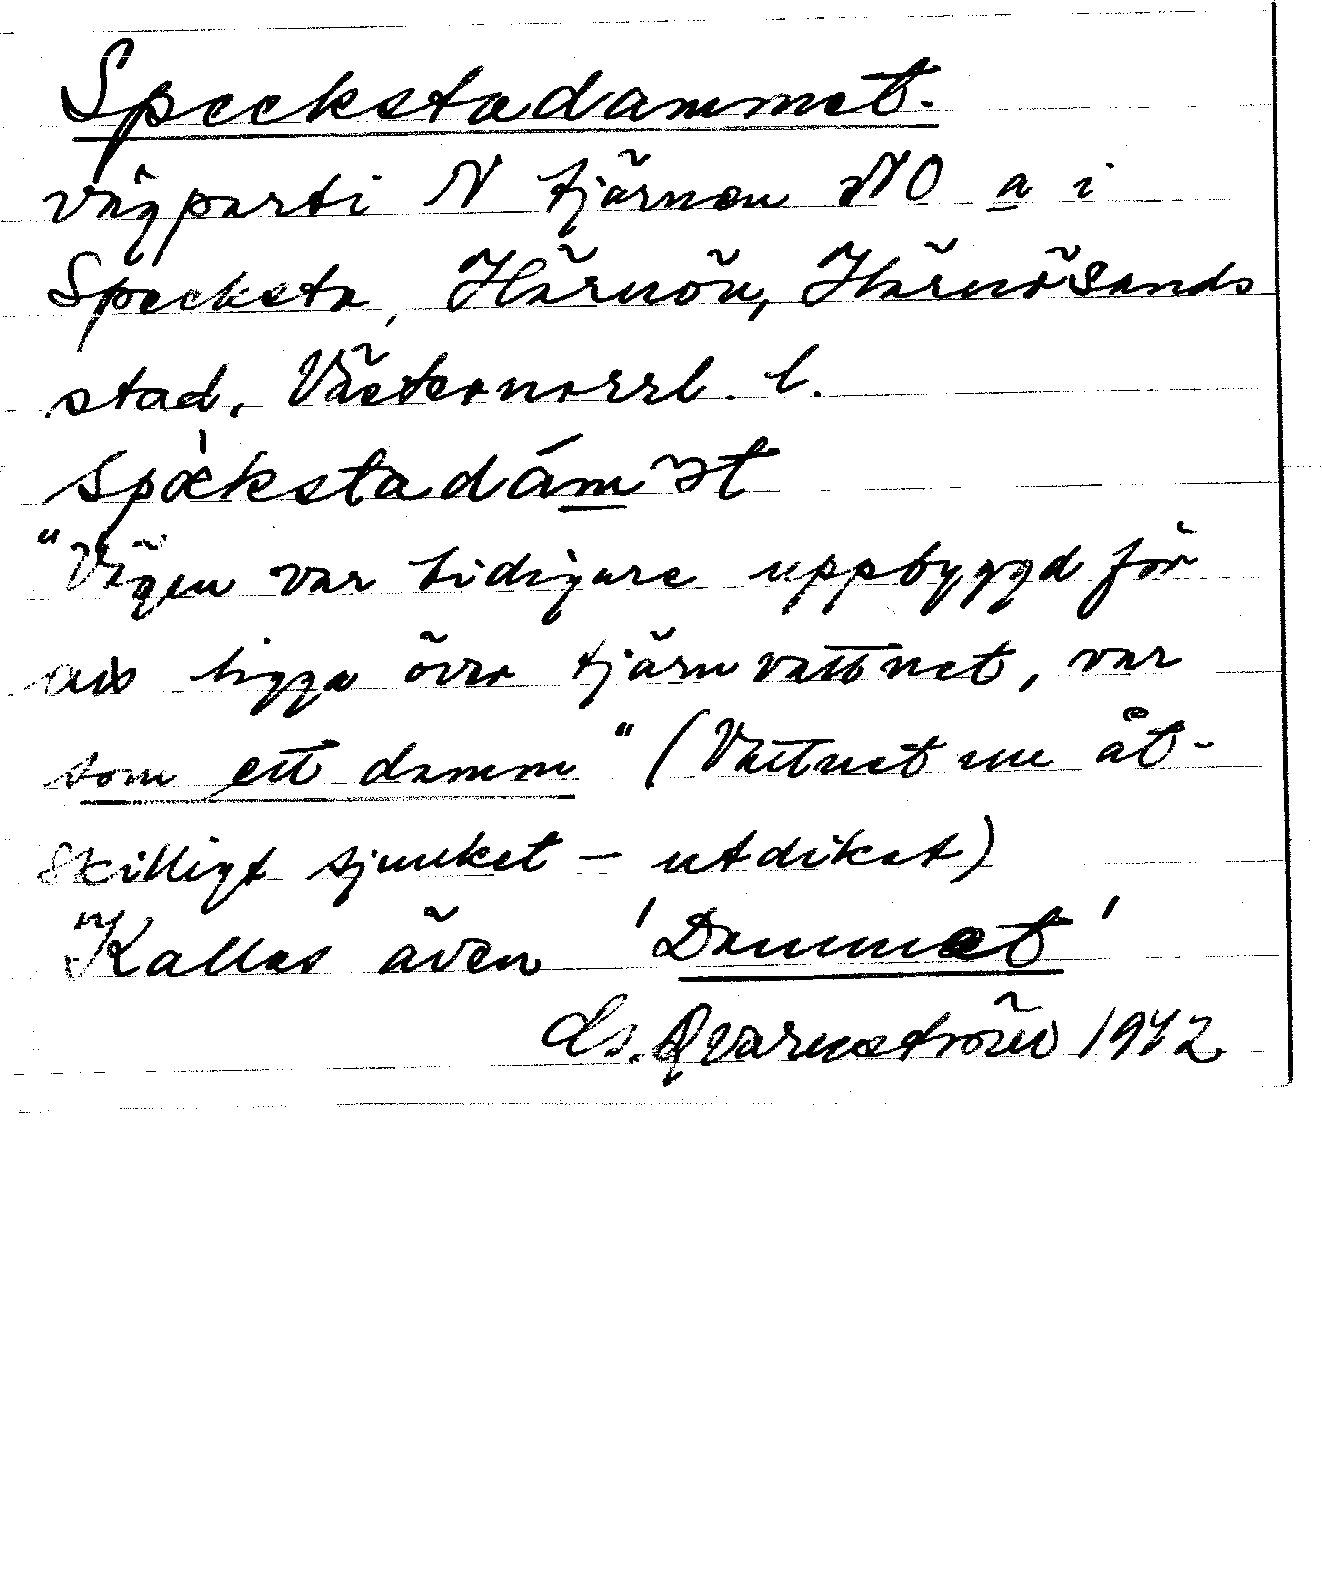 Speckstadammet.
vägparti N tjärnen NO a i
Specksta, Härnön, Härnösands
stad, Västernorrl. l.
spækstadám̲ət
"Vägen var tidigare uppbyggd för
att ligga över tjärnvattnet, var
som ett damm" (Vattnet nu åt-
skilligt sjunket – utdiket)
Kallas även 'Dammet'
Qvarnström 1942